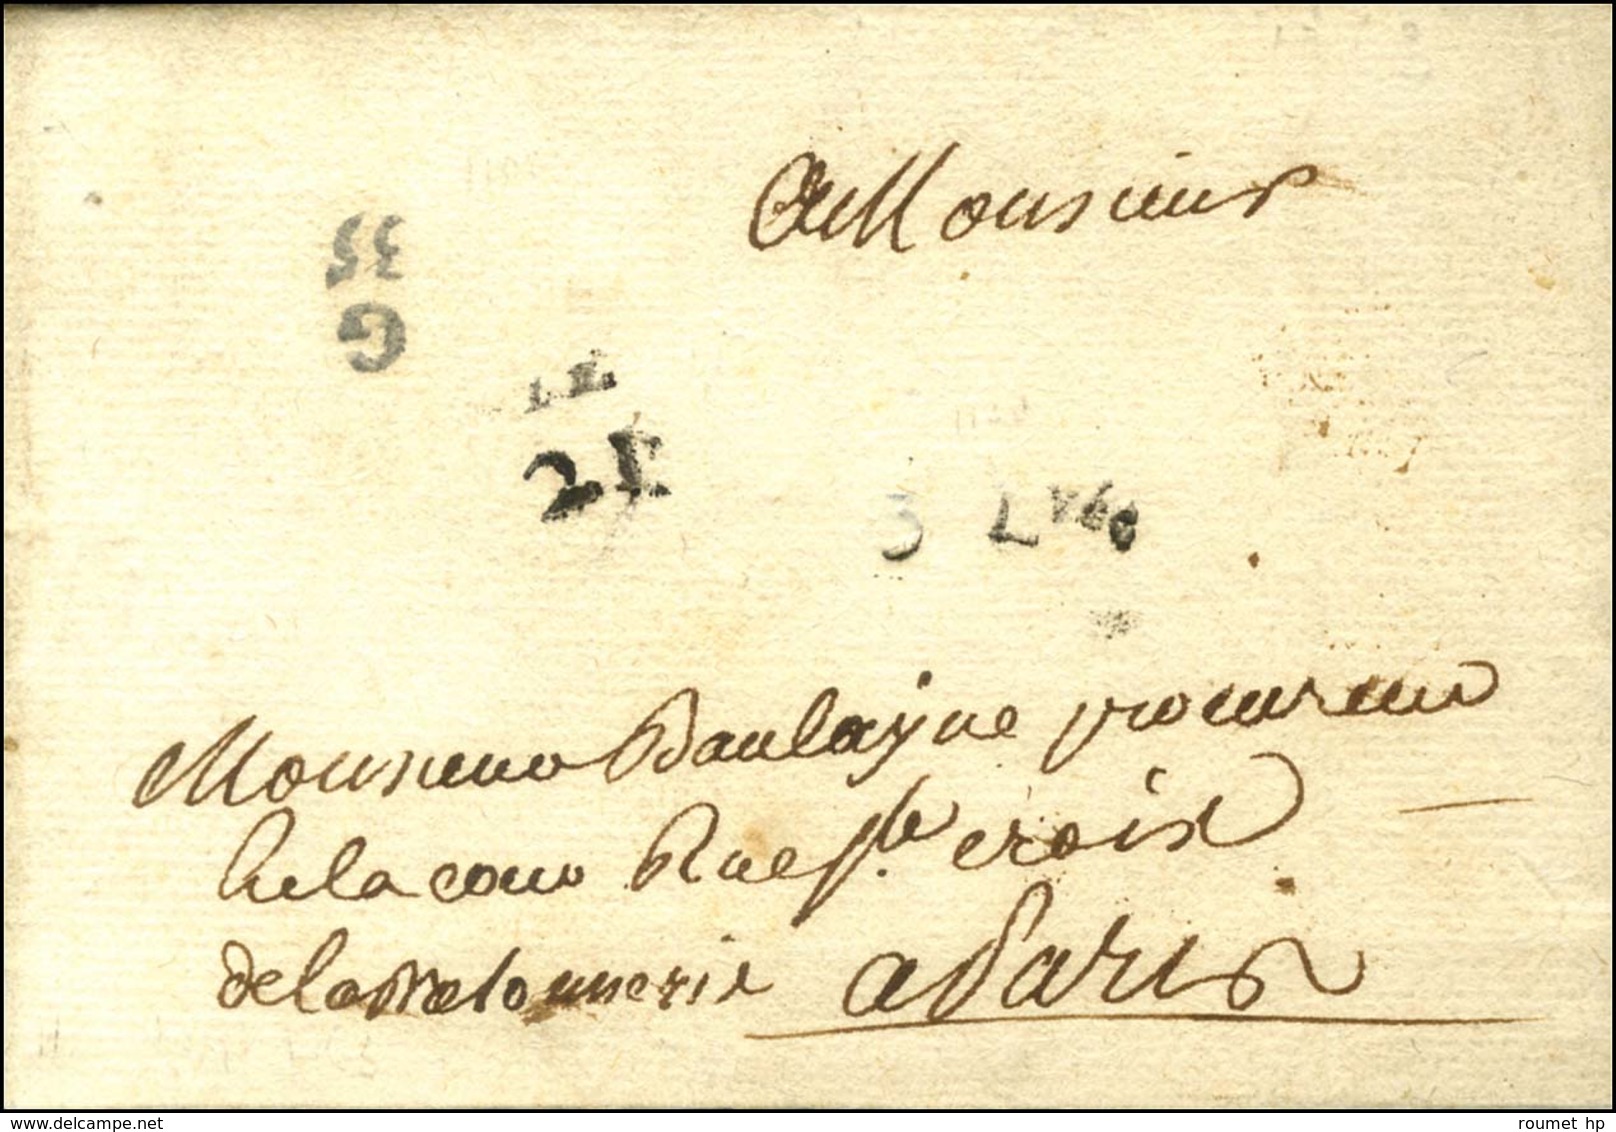 A Monsieur
35
G
2E
3 L
Monsieur Baulayne procureur
de la cour Rue Ste croix
de la Bretonnerie a Paris
delcampe.net
roumet hp